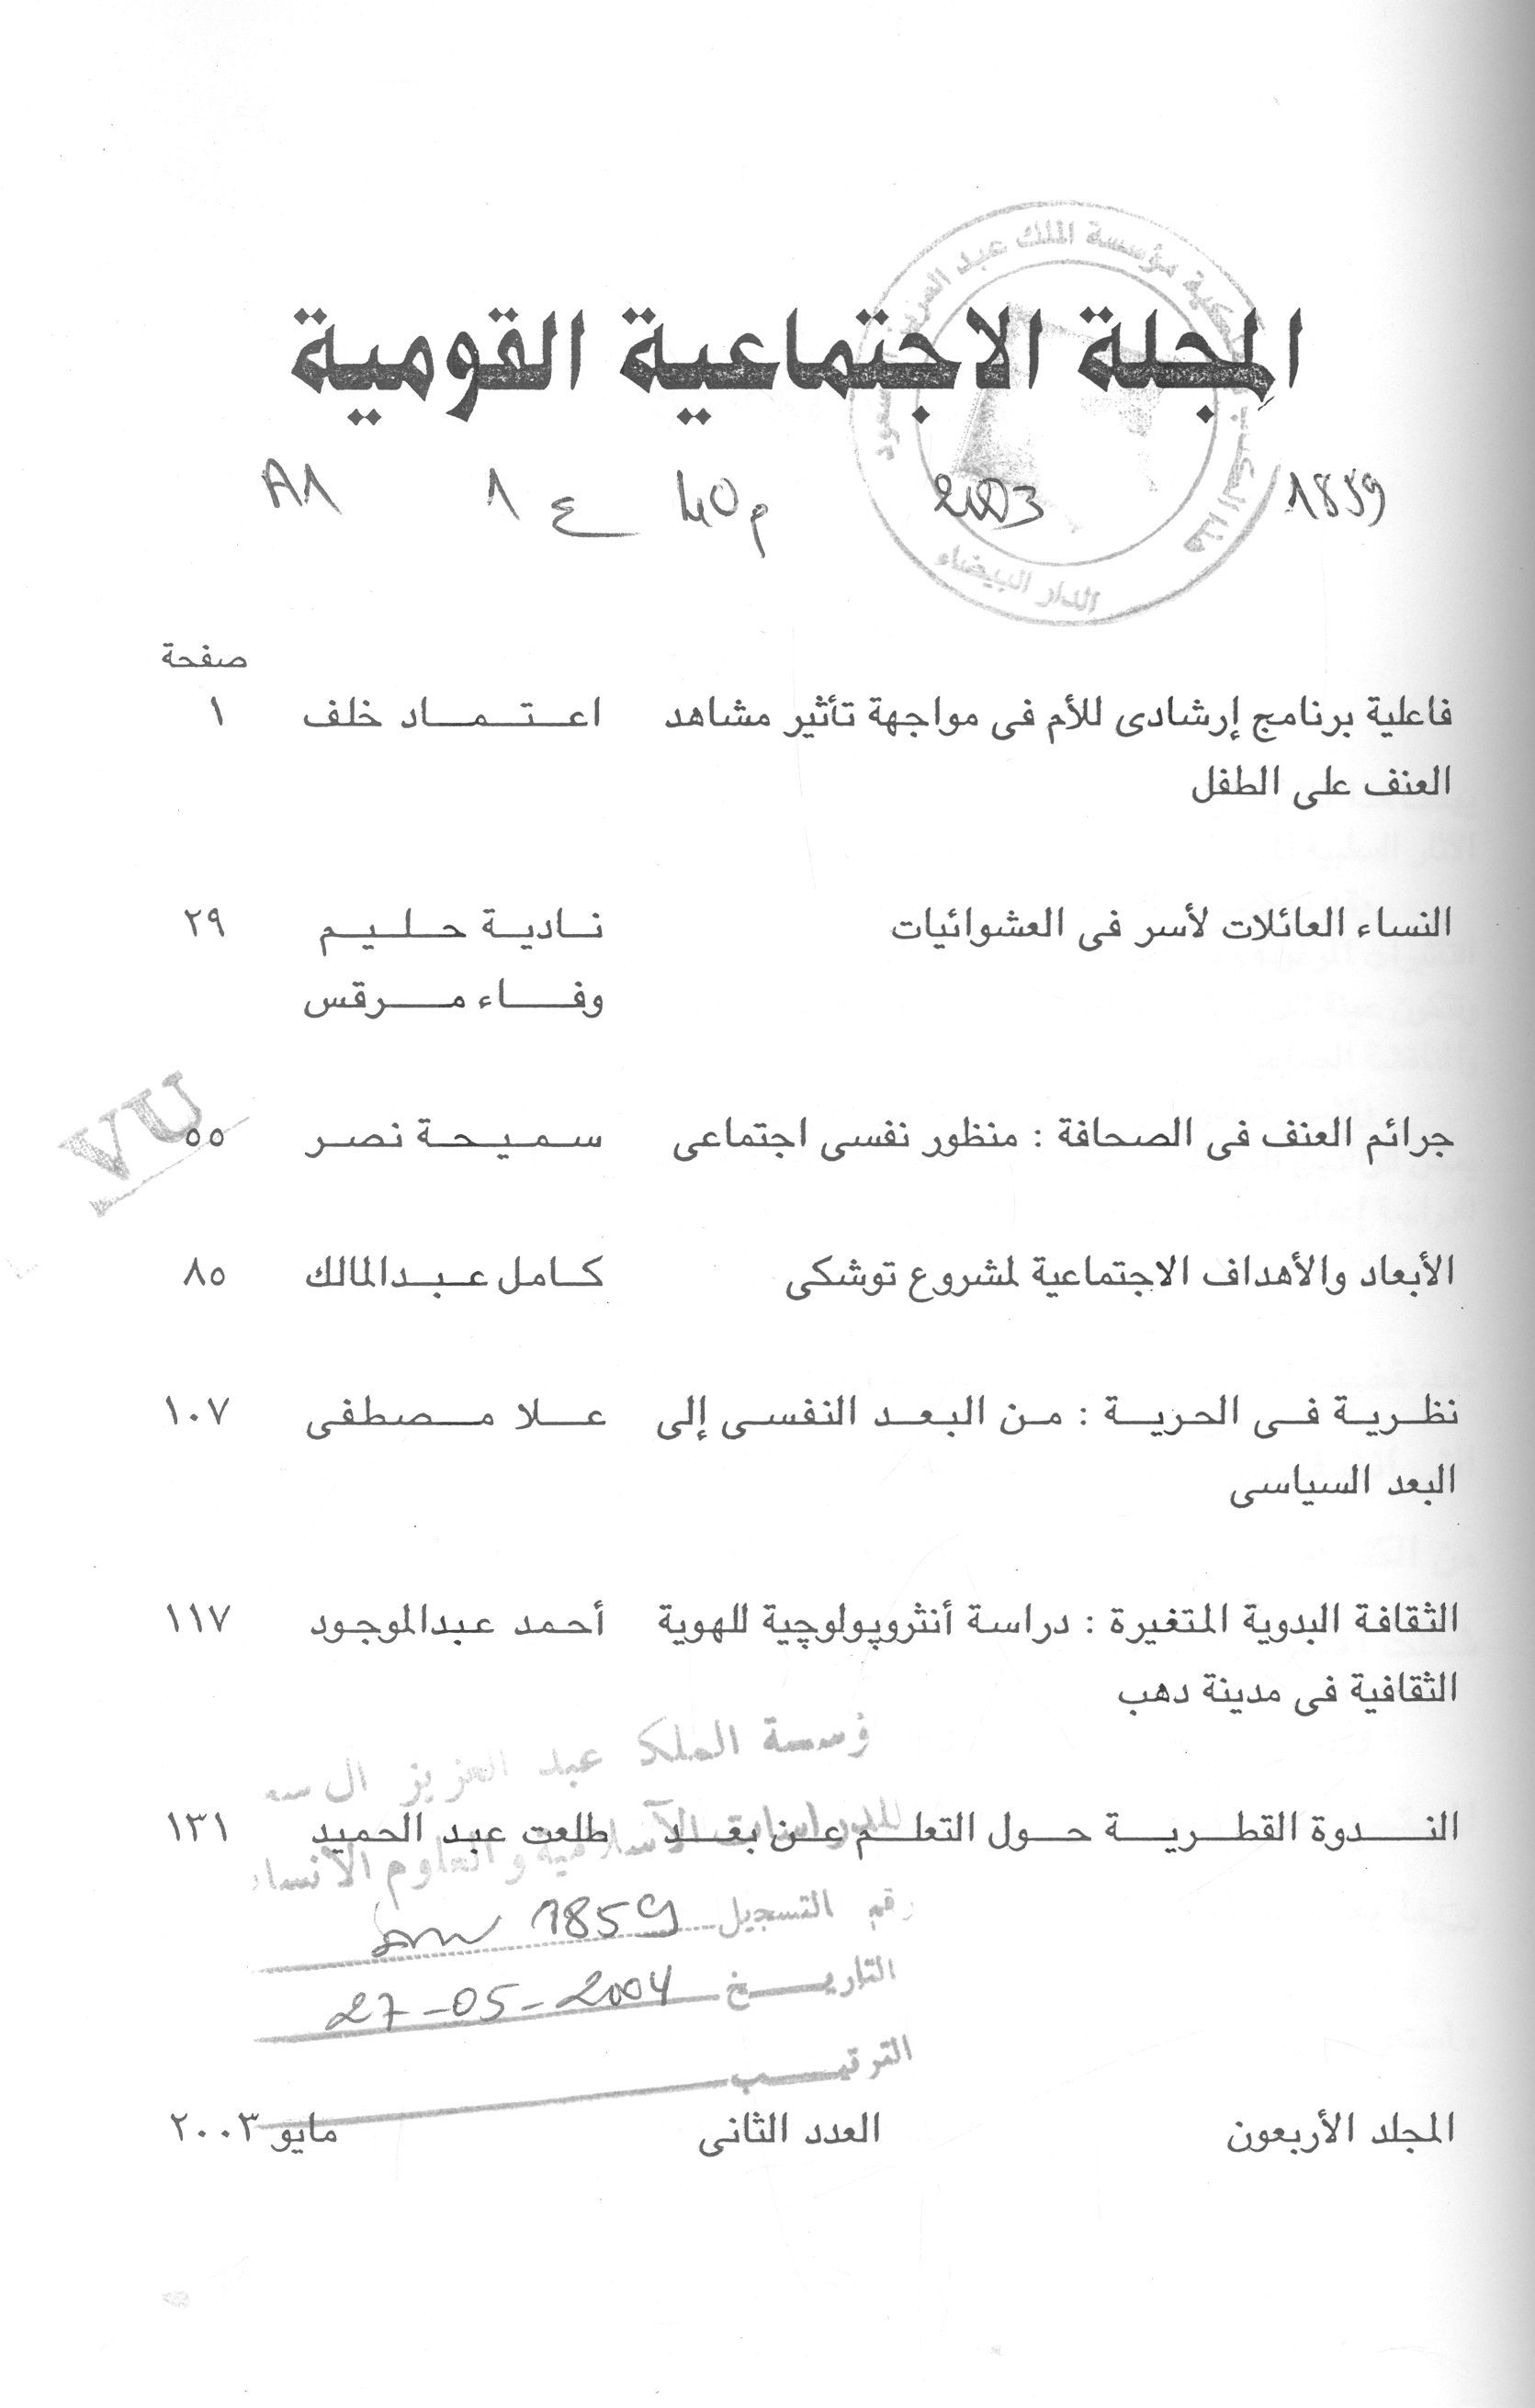 المجلة الاجتماعية القومية
هذا الكتاب ملكية مؤسسة الملك عبد العزيز سعود
الدار البيضاء
1859 2003 م40 ع 1 A1
صفحة
فاعلية برنامج إرشادى للأم فى مواجهة تأثير مشاهد اعتماد خلف ١
العنف على الطفل
النساء العائلات لأسر فى العشوائيات نادية حليم ٢٩
وفاء مرقس
VU
جرائم العنف فى الصحافة : منظور نفسى اجتماعى سميحة نصر ٥٥
الأبعاد والأهداف الاجتماعية لمشروع توشكى كامل عبدالمالك ٨٥
نظرية فى الحرية : من البعد النفسى إلى علا مصطفى ١٠٧
البعد السياسى
الثقافة البدوية المتغيرة : دراسة أنثروپولوچية للهوية أحمد عبدالموجود ١١٧
الثقافية فى مدينة دهب
ؤسسة الملك عبد العزيز ال سع
الندوة القطرية حول التعلم عن بعد طلعت عبد الحميد ١٣١
للدراسات الآسلامية والعلوم الانسا
رقم التسجيل 1859
التاريخ 27-05-2004
الترتيب
المجلد الأربعون العدد الثانى مايو ٢٠٠٣